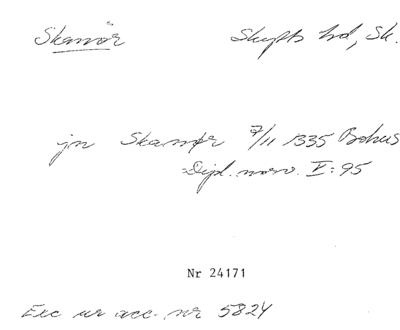 Skanör Skytts hd, Sk.
jn Skanør 7/11 1335 Bohus
Dipl. norv. V: 95
Nr 24171
Exc ur acc. nr 5824